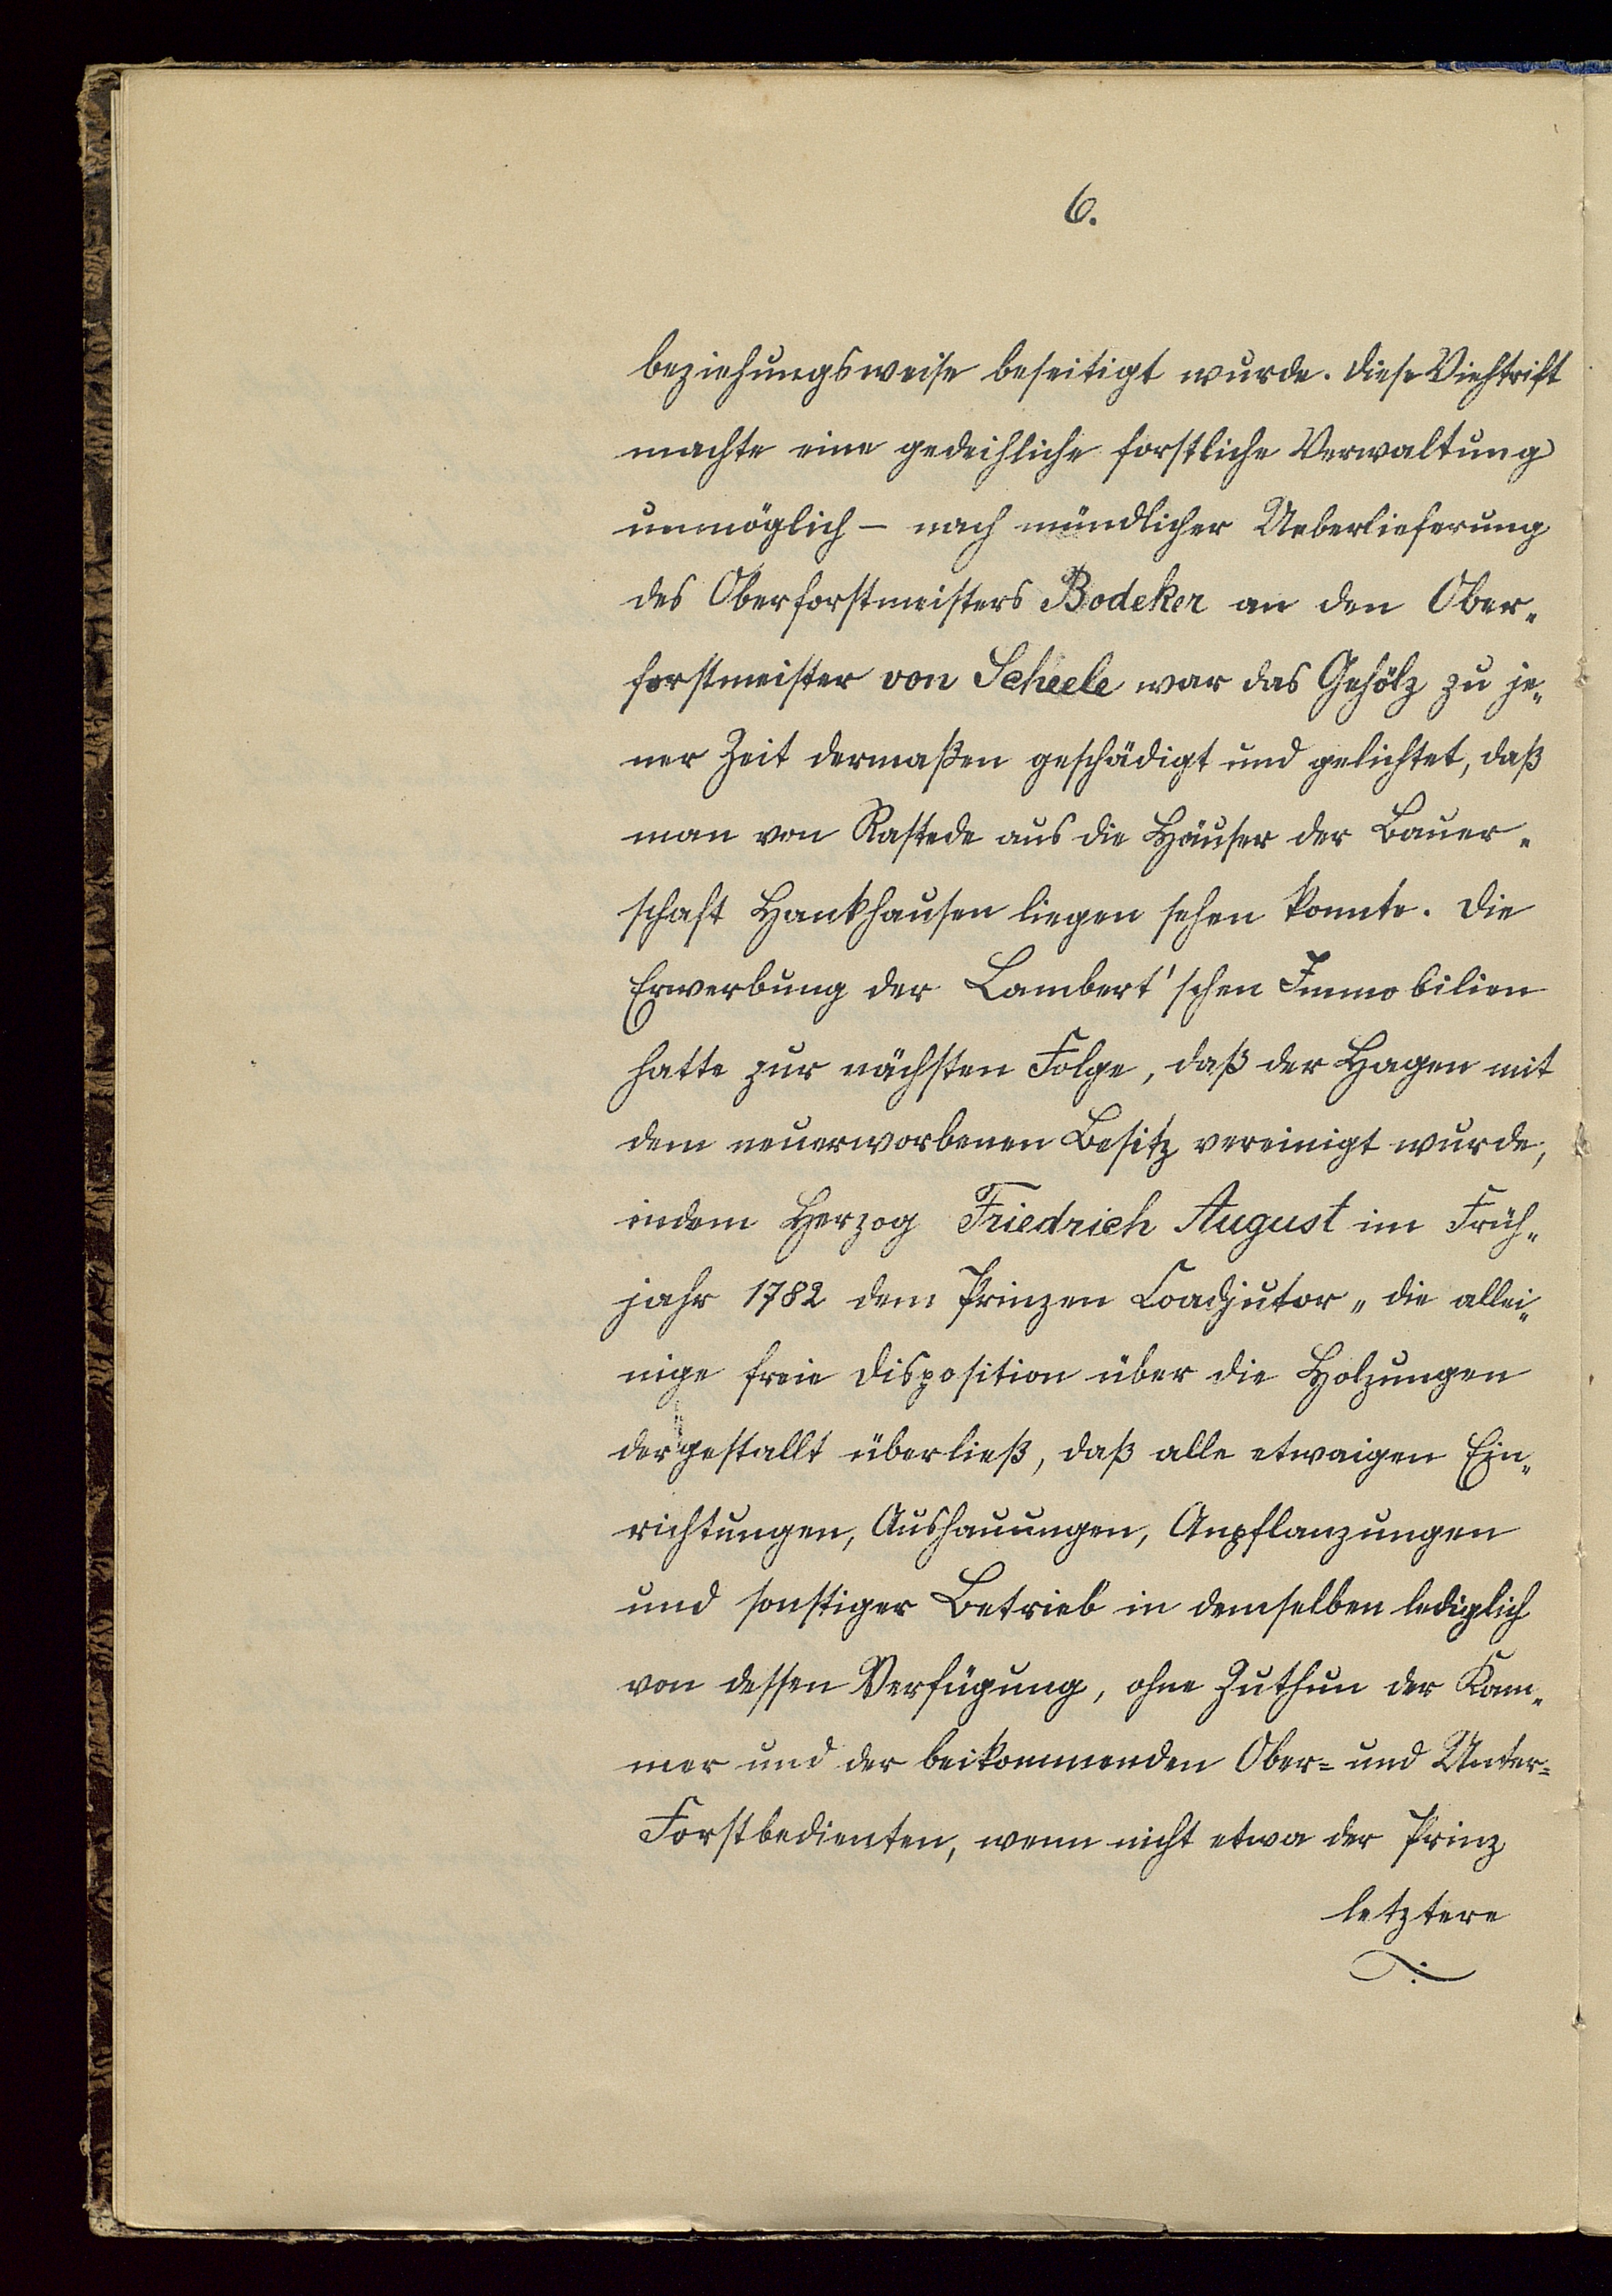 6.
beziehungsweise beseitigt wurde. Diese Viehtrift
machte eine gedeihliche forstliche Verwaltung
unmöglich – nach mündlicher Ueberlieferung
des Oberforstmeisters Bodeker an den Ober„
forstmeister von Scheele war das Gehölz zu je„
ner Zeit dermaßen geschädigt und gelichtet, daß
man von Rastede aus die Häuser der Bauer„
schaft Hankhausen liegen sehen konnte. Die
Erwerbung der Lambert'schen Immobilien
hatte zur nächsten Folge, daß der Hagen mit
dem neuerworbenen Besitz vereinigt wurde,
indem Herzog Friedrich August im Früh„
jahr 1782 dem Prinzen Coadjutor „die allei„
nige freie Disposition über die Holzungen
dergestallt überließ, daß alle etwaigen Ein„
richtungen, Aushauungen, Anpflanzungen
und sonstiger Betrieb in demselben lediglich
von dessen Verfügung, ohne Zuthun der Kam„
mer und der beikommenden Ober= und Unter=
Forstbedienten, wenn nicht etwa der Prinz
letztere